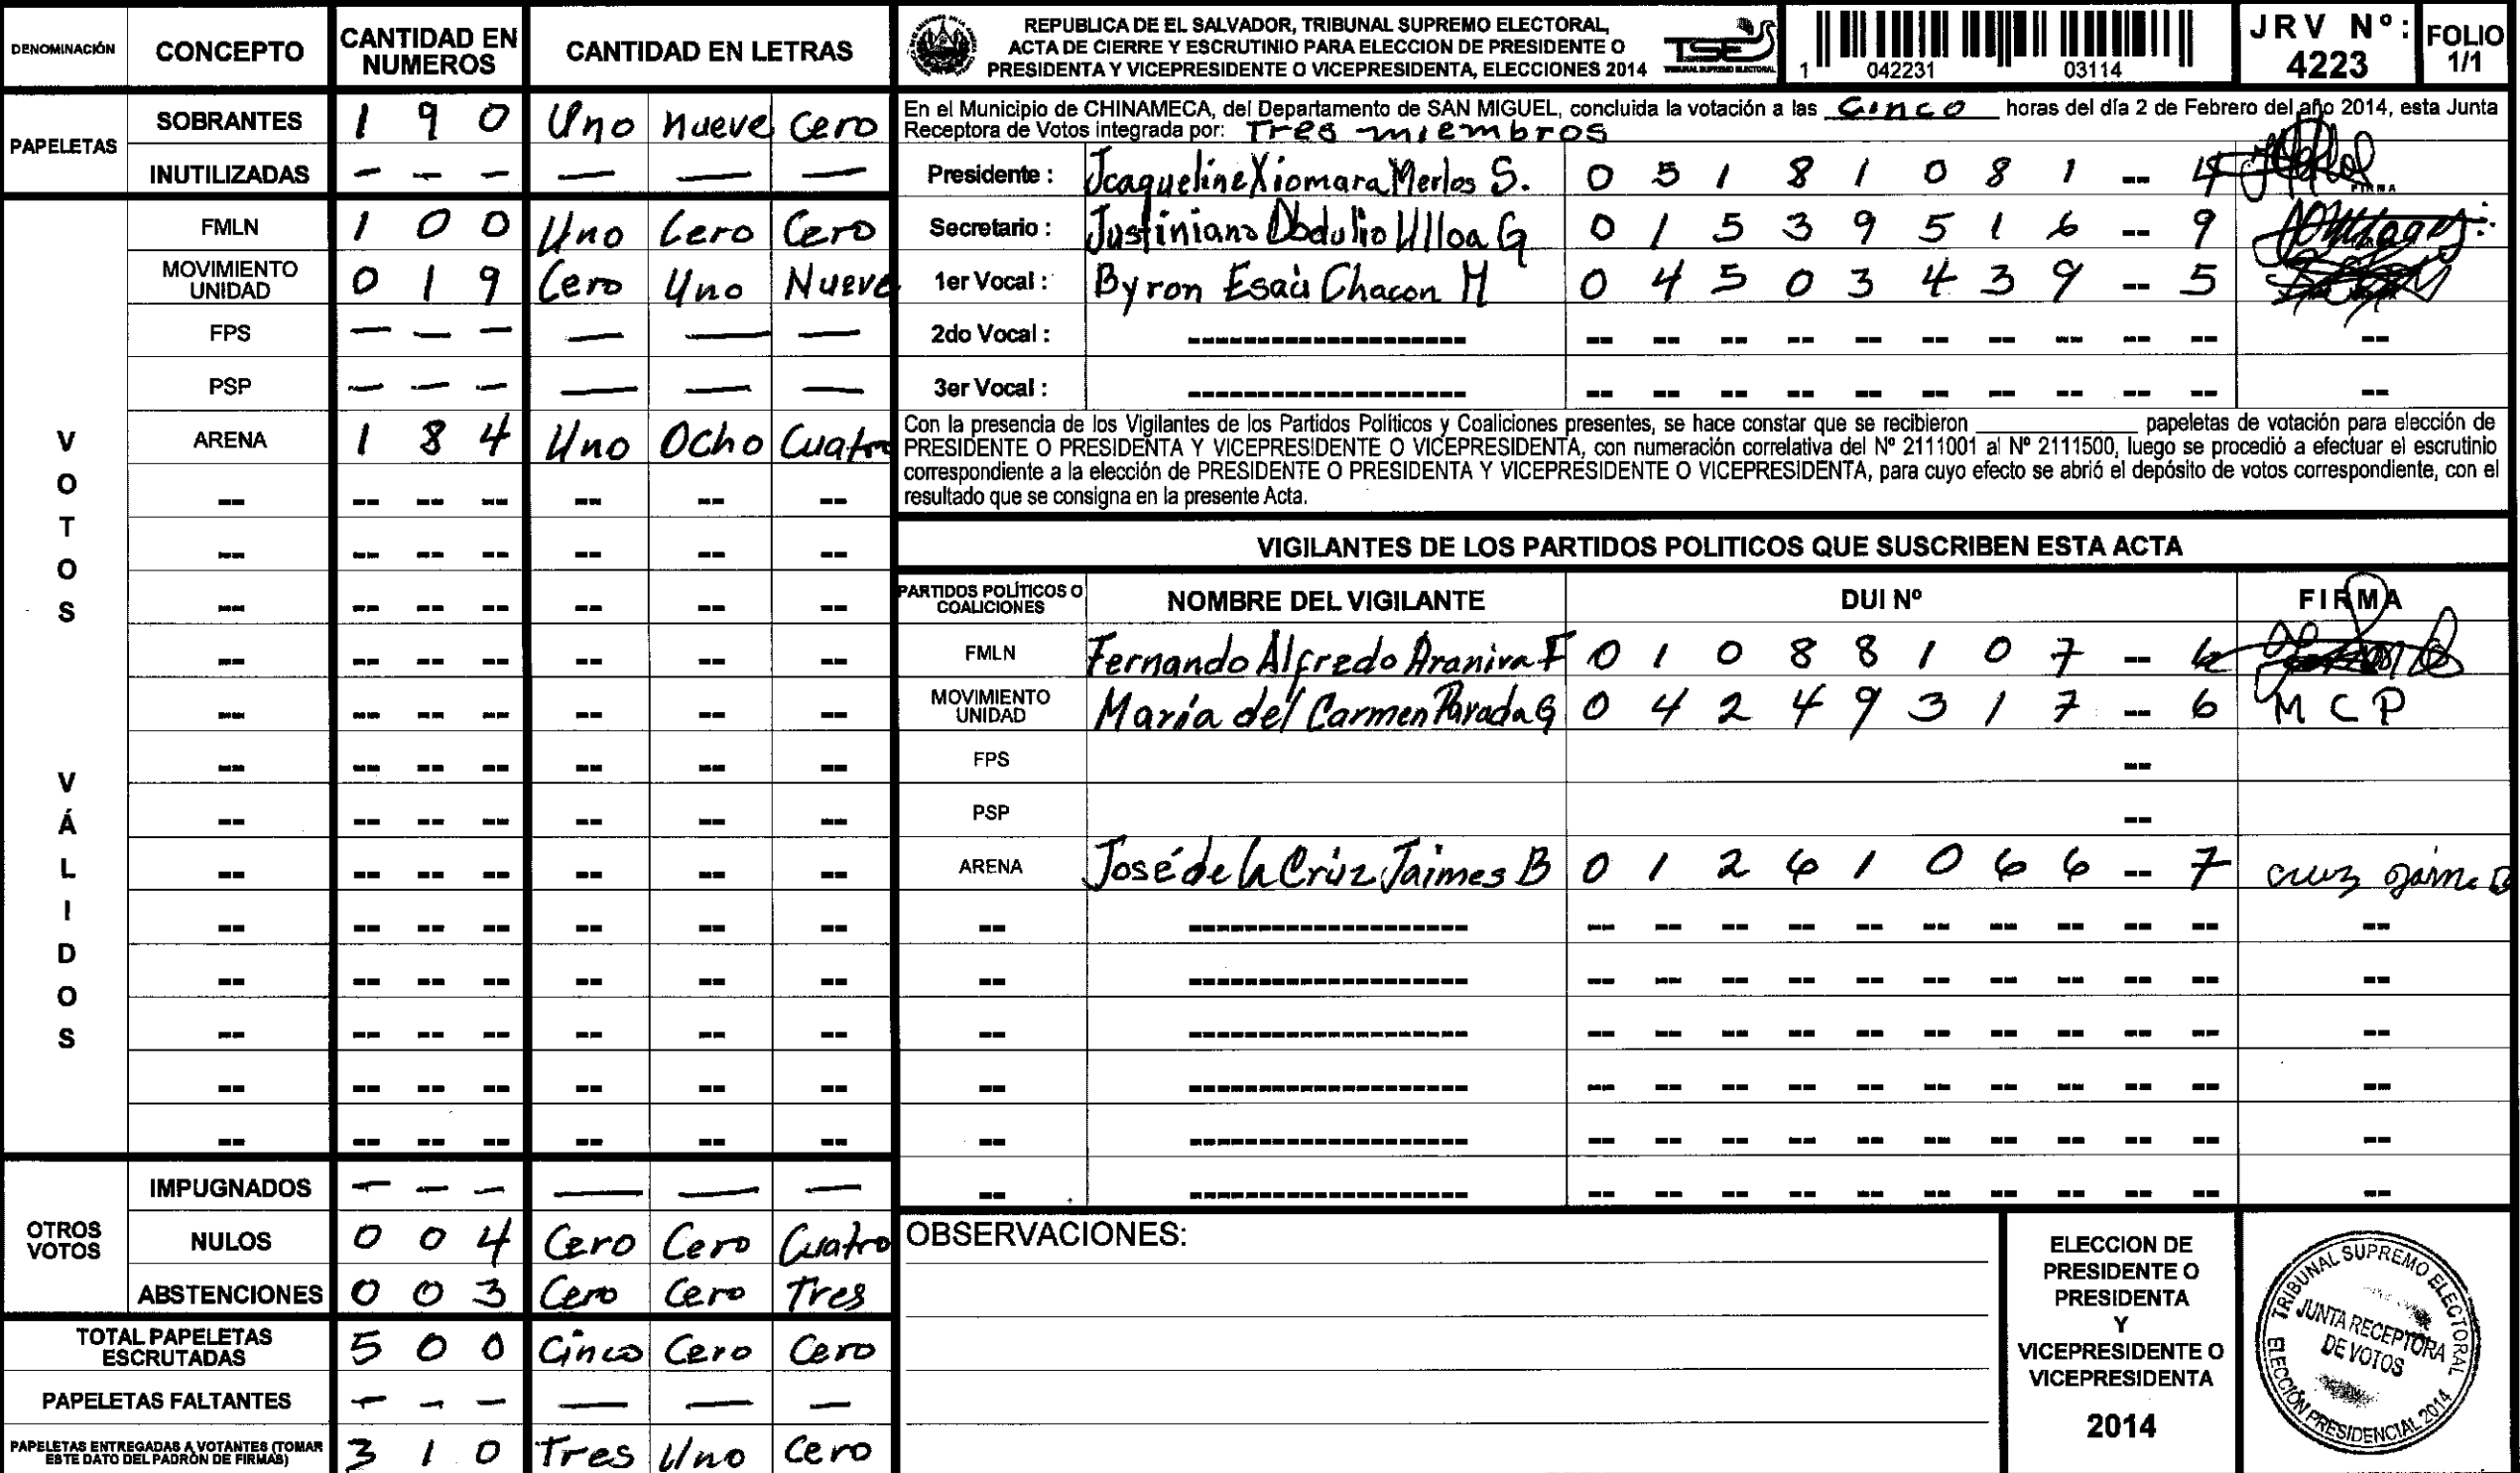 DENOMINACIÓN CONCEPTO CANTIDAD EN NUMEROS CANTIDAD EN LETRAS
PAPELETAS
SOBRANTES 1 9 0 Uno nueve cero
INUTILIZADAS — — — — — —
VOTOS VÁLIDOS
FMLN 1 0 0 Uno Cero Cero
MOVIMIENTO UNIDAD 0 1 9 Cero Uno Nueve
FPS — — — — — —
PSP — — — — — —
ARENA 1 8 4 Uno Ocho Cuatro
-- -- -- -- -- -- --
-- -- -- -- -- -- --
-- -- -- -- -- -- --
-- -- -- -- -- -- --
-- -- -- -- -- -- --
-- -- -- -- -- -- --
-- -- -- -- -- -- --
-- -- -- -- -- -- --
-- -- -- -- -- -- --
-- -- -- -- -- -- --
-- -- -- -- -- -- --
-- -- -- -- -- -- --
-- -- -- -- -- -- --
OTROS VOTOS
IMPUGNADOS — — — — — —
NULOS 0 0 4 Cero Cero Cuatro
ABSTENCIONES 0 0 3 Cero Cero Tres
TOTAL PAPELETAS ESCRUTADAS 5 0 0 Cinco Cero Cero
PAPELETAS FALTANTES — — — — — —
PAPELETAS ENTREGADAS A VOTANTES (TOMAR ESTE DATO DEL PADRÓN DE FIRMAS) 3 1 0 Tres Uno Cero
REPUBLICA DE EL SALVADOR, TRIBUNAL SUPREMO ELECTORAL,
ACTA DE CIERRE Y ESCRUTINIO PARA ELECCION DE PRESIDENTE O
PRESIDENTA Y VICEPRESIDENTE O VICEPRESIDENTA, ELECCIONES 2014
TSE
TRIBUNAL SUPREMO ELECTORAL
1 042231 03114
JRV Nº: 4223
FOLIO 1/1
En el Municipio de CHINAMECA, del Departamento de SAN MIGUEL, concluida la votación a las Cinco horas del día 2 de Febrero del año 2014, esta Junta
Receptora de Votos integrada por: Tres miembros
Presidente : Jcaqueline Xiomara Merlos S. 0 5 1 8 1 0 8 1 -- 4 FIRMA
Secretario : Justiniano Obdulio Ulloa G 0 1 5 3 9 5 1 6 -- 9
1er Vocal : Byron Esaú Chacon M 0 4 5 0 3 4 3 9 -- 5
2do Vocal : ------------------- -- -- -- -- -- -- -- -- -- -- --
3er Vocal : ------------------- -- -- -- -- -- -- -- -- -- -- --
Con la presencia de los Vigilantes de los Partidos Políticos y Coaliciones presentes, se hace constar que se recibieron ________ papeletas de votación para elección de
PRESIDENTE O PRESIDENTA Y VICEPRESIDENTE O VICEPRESIDENTA, con numeración correlativa del Nº 2111001 al Nº 2111500, luego se procedió a efectuar el escrutinio
correspondiente a la elección de PRESIDENTE O PRESIDENTA Y VICEPRESIDENTE O VICEPRESIDENTA, para cuyo efecto se abrió el depósito de votos correspondiente, con el
resultado que se consigna en la presente Acta.
VIGILANTES DE LOS PARTIDOS POLITICOS QUE SUSCRIBEN ESTA ACTA
PARTIDOS POLÍTICOS O COALICIONES NOMBRE DEL VIGILANTE DUI Nº FIRMA
FMLN Fernando Alfredo Araniva F 0 1 0 8 8 1 0 7 -- 6
MOVIMIENTO UNIDAD María del Carmen Parada G 0 4 2 4 9 3 1 7 -- 6 M C P
FPS --
PSP --
ARENA José de la Crúz Jaimes B 0 1 2 6 1 0 6 6 -- 7 cruz
-- ------------------- -- -- -- -- -- -- -- -- -- -- --
-- ------------------- -- -- -- -- -- -- -- -- -- -- --
-- ------------------- -- -- -- -- -- -- -- -- -- -- --
-- ------------------- -- -- -- -- -- -- -- -- -- -- --
-- ------------------- -- -- -- -- -- -- -- -- -- -- --
-- ------------------- -- -- -- -- -- -- -- -- -- -- --
OBSERVACIONES:
ELECCION DE
PRESIDENTE O
PRESIDENTA
Y
VICEPRESIDENTE O
VICEPRESIDENTA
2014
TRIBUNAL SUPREMO ELECTORAL
JUNTA RECEPTORA
DE VOTOS
ELECCIÓN PRESIDENCIAL 2014